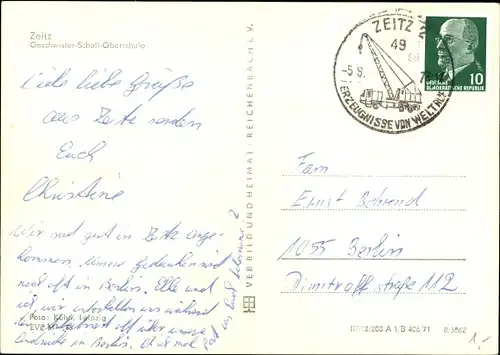 Zeitz
Geschwister-Scholl-Oberschule
Viele liebe Grüße
aus Zeitz senden
Euch
Christine
Wir sind gut in Zeitz ange-
kommen. Unsere Gedanken sind
noch oft in Berlin. Elle und
ich, wir unterhalten uns während
der oft über unsere
Eindrücke in Berlin.
Foto: Kühn, Leipzig
VEB BILD UND HEIMAT · REICHENBACH I. V.
ZEITZ
49
-5.9.
ERZEUGNISSE VON WELTRUF
10
DEUTSCHE
DEMOKRATISCHE REPUBLIK
Fam.
Ernst Behrend
1055 Berlin
Dimitroffstraße 112
III/18/203 A 1/B 406/71
1,-